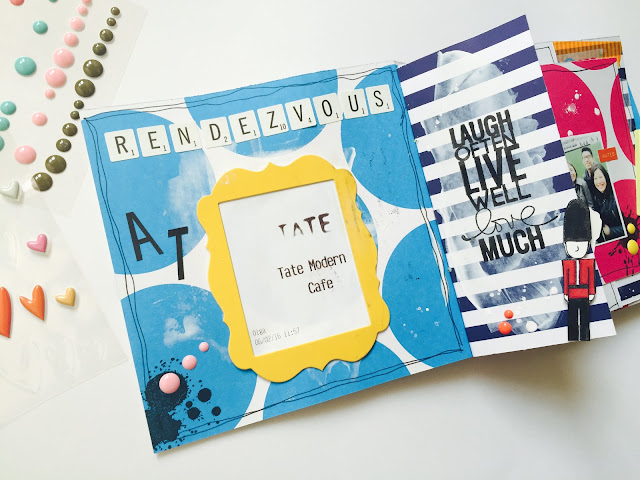 RENDEZVOUS
AT
TATE
Tate Modern
Cafe
LAUGH
OFTEN
LIVE
WELL
love
MUCH